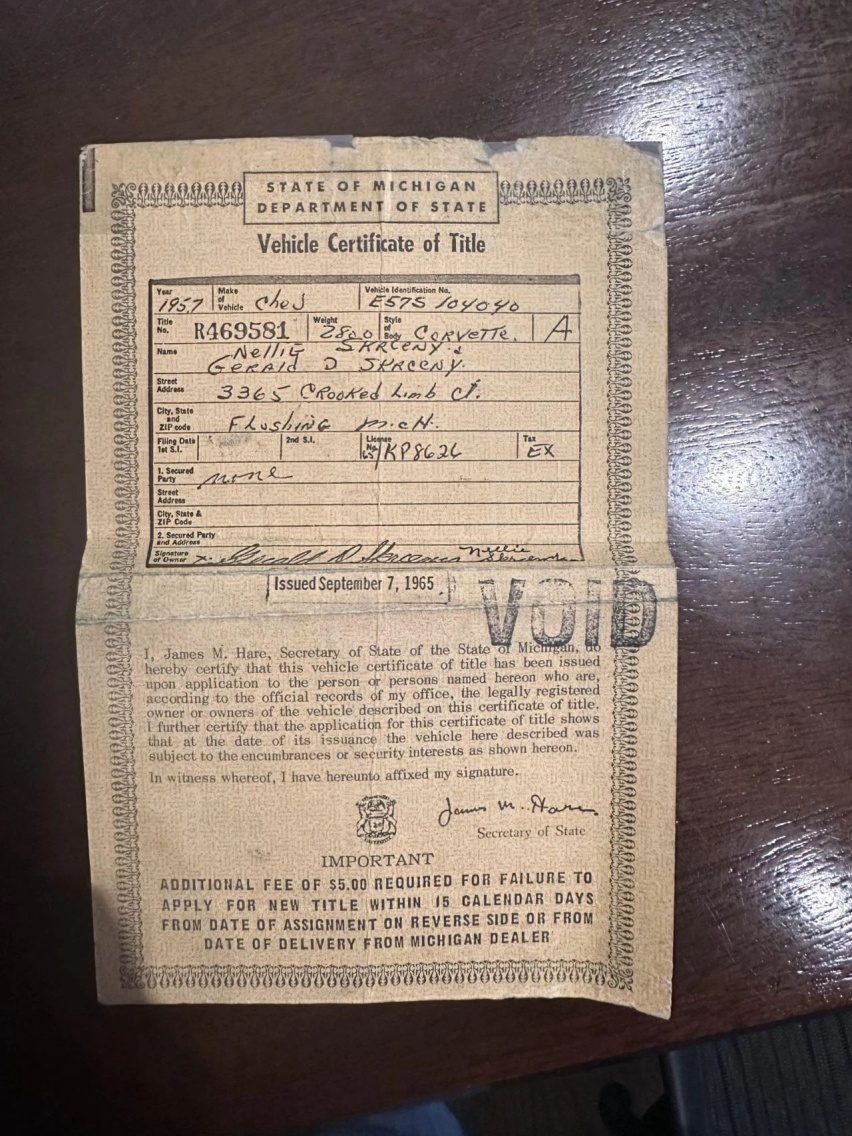 STATE OF MICHIGAN
DEPARTMENT OF STATE
Vehicle Certificate of Title
Year 1957 Make of Vehicle Chev Vehicle Identification No. E57S 104040
Title No. R469581 Weight 2800 Style of Body CORVETTE. A
Name Nellie SKRCENY &
GERALD D SKRCENY.
Street Address 3365 CROOKED Limb Ct.
City, State and ZIP code FLUSHING MICH.
Filing Date 1st S.I. 2nd S.I. License No. 65 KP8626 Tax EX
1. Secured Party none
Street Address
City, State & ZIP Code
2. Secured Party and Address
Signature of Owner x. Gerald D. Skrceny Nellie Skrceny
Issued September 7, 1965
VOID
I, James M. Hare, Secretary of State of the State of Michigan, do
hereby certify that this vehicle certificate of title has been issued
upon application to the person or persons named hereon who are,
according to the official records of my office, the legally registered
owner or owners of the vehicle described on this certificate of title.
I further certify that the application for this certificate of title shows
that at the date of its issuance the vehicle here described was
subject to the encumbrances or security interests as shown hereon.
In witness whereof, I have hereunto affixed my signature.
James M. Hare
Secretary of State
IMPORTANT
ADDITIONAL FEE OF $5.00 REQUIRED FOR FAILURE TO
APPLY FOR NEW TITLE WITHIN 15 CALENDAR DAYS
FROM DATE OF ASSIGNMENT ON REVERSE SIDE OR FROM
DATE OF DELIVERY FROM MICHIGAN DEALER